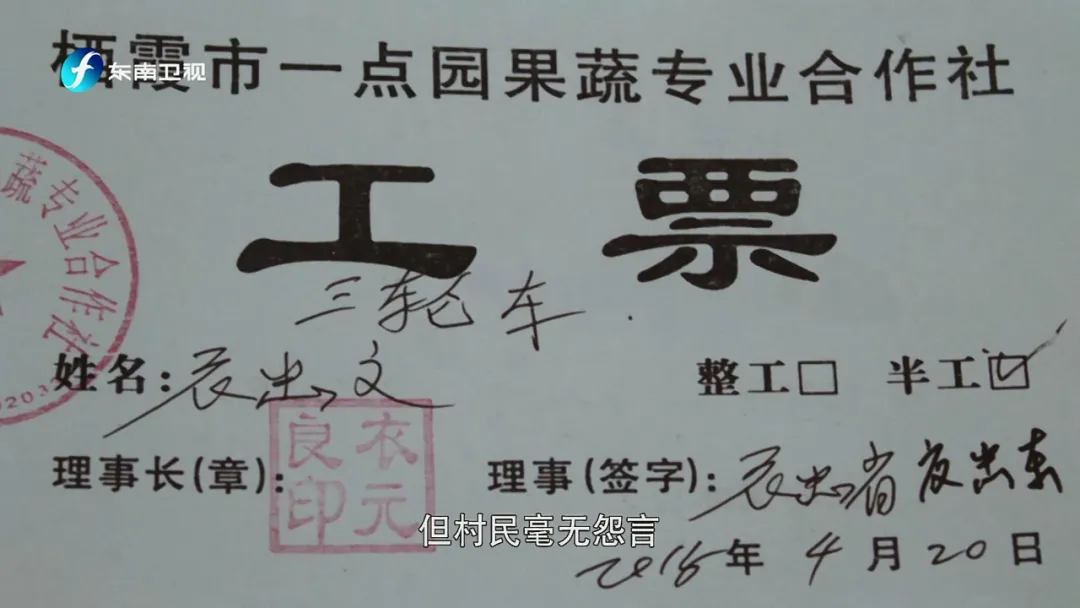 东南卫视
栖霞市一点园果蔬专业合作社
工票
三轮车
蔬专业合作社
姓名：衣忠文
整工□ 半工☑
理事长(章)：
衣元良印
理事(签字)：衣忠省 衣忠东
2018年4月20日
但村民毫无怨言